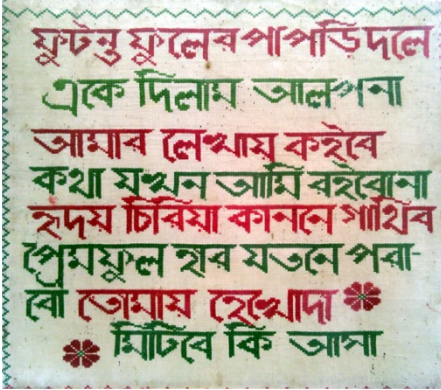 ফুটন্ত ফুলের পাপড়ি দলে
একে দিলাম আলপনা
আমার লেখায় কইবে
কথা যখন আমি রইবোনা
হৃদয় চিরিয়া কাননে গাথিব
প্রেমফুল হার যতনে পরা-
বো তোমায় হেখোদা
মিটিবে কি আসা